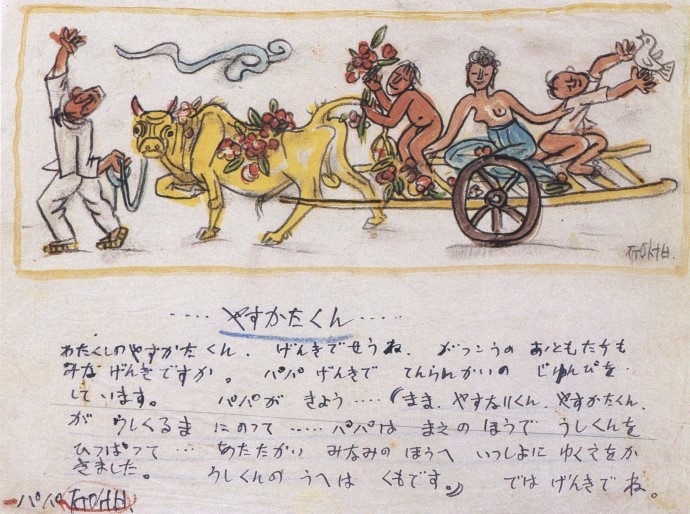 ‥‥やすかたくん‥‥‥
わたくしのやすかたくん、げんきでせうね。がつこうの おともだちも
みな げんきですか。パパ げんきで てんらんかいの じゆんびを
して います。パパが きよう‥‥(まま、やすなりくん、やすかたくん、
が うしくるま にのつて‥‥‥パパは まえの ほうで うしくんを
ひつぱつて… あたたかい みなみのほうへ いつしよに ゆくえをか
きました。うしくんの うへは くもです。) では げんきで ね。
パパ